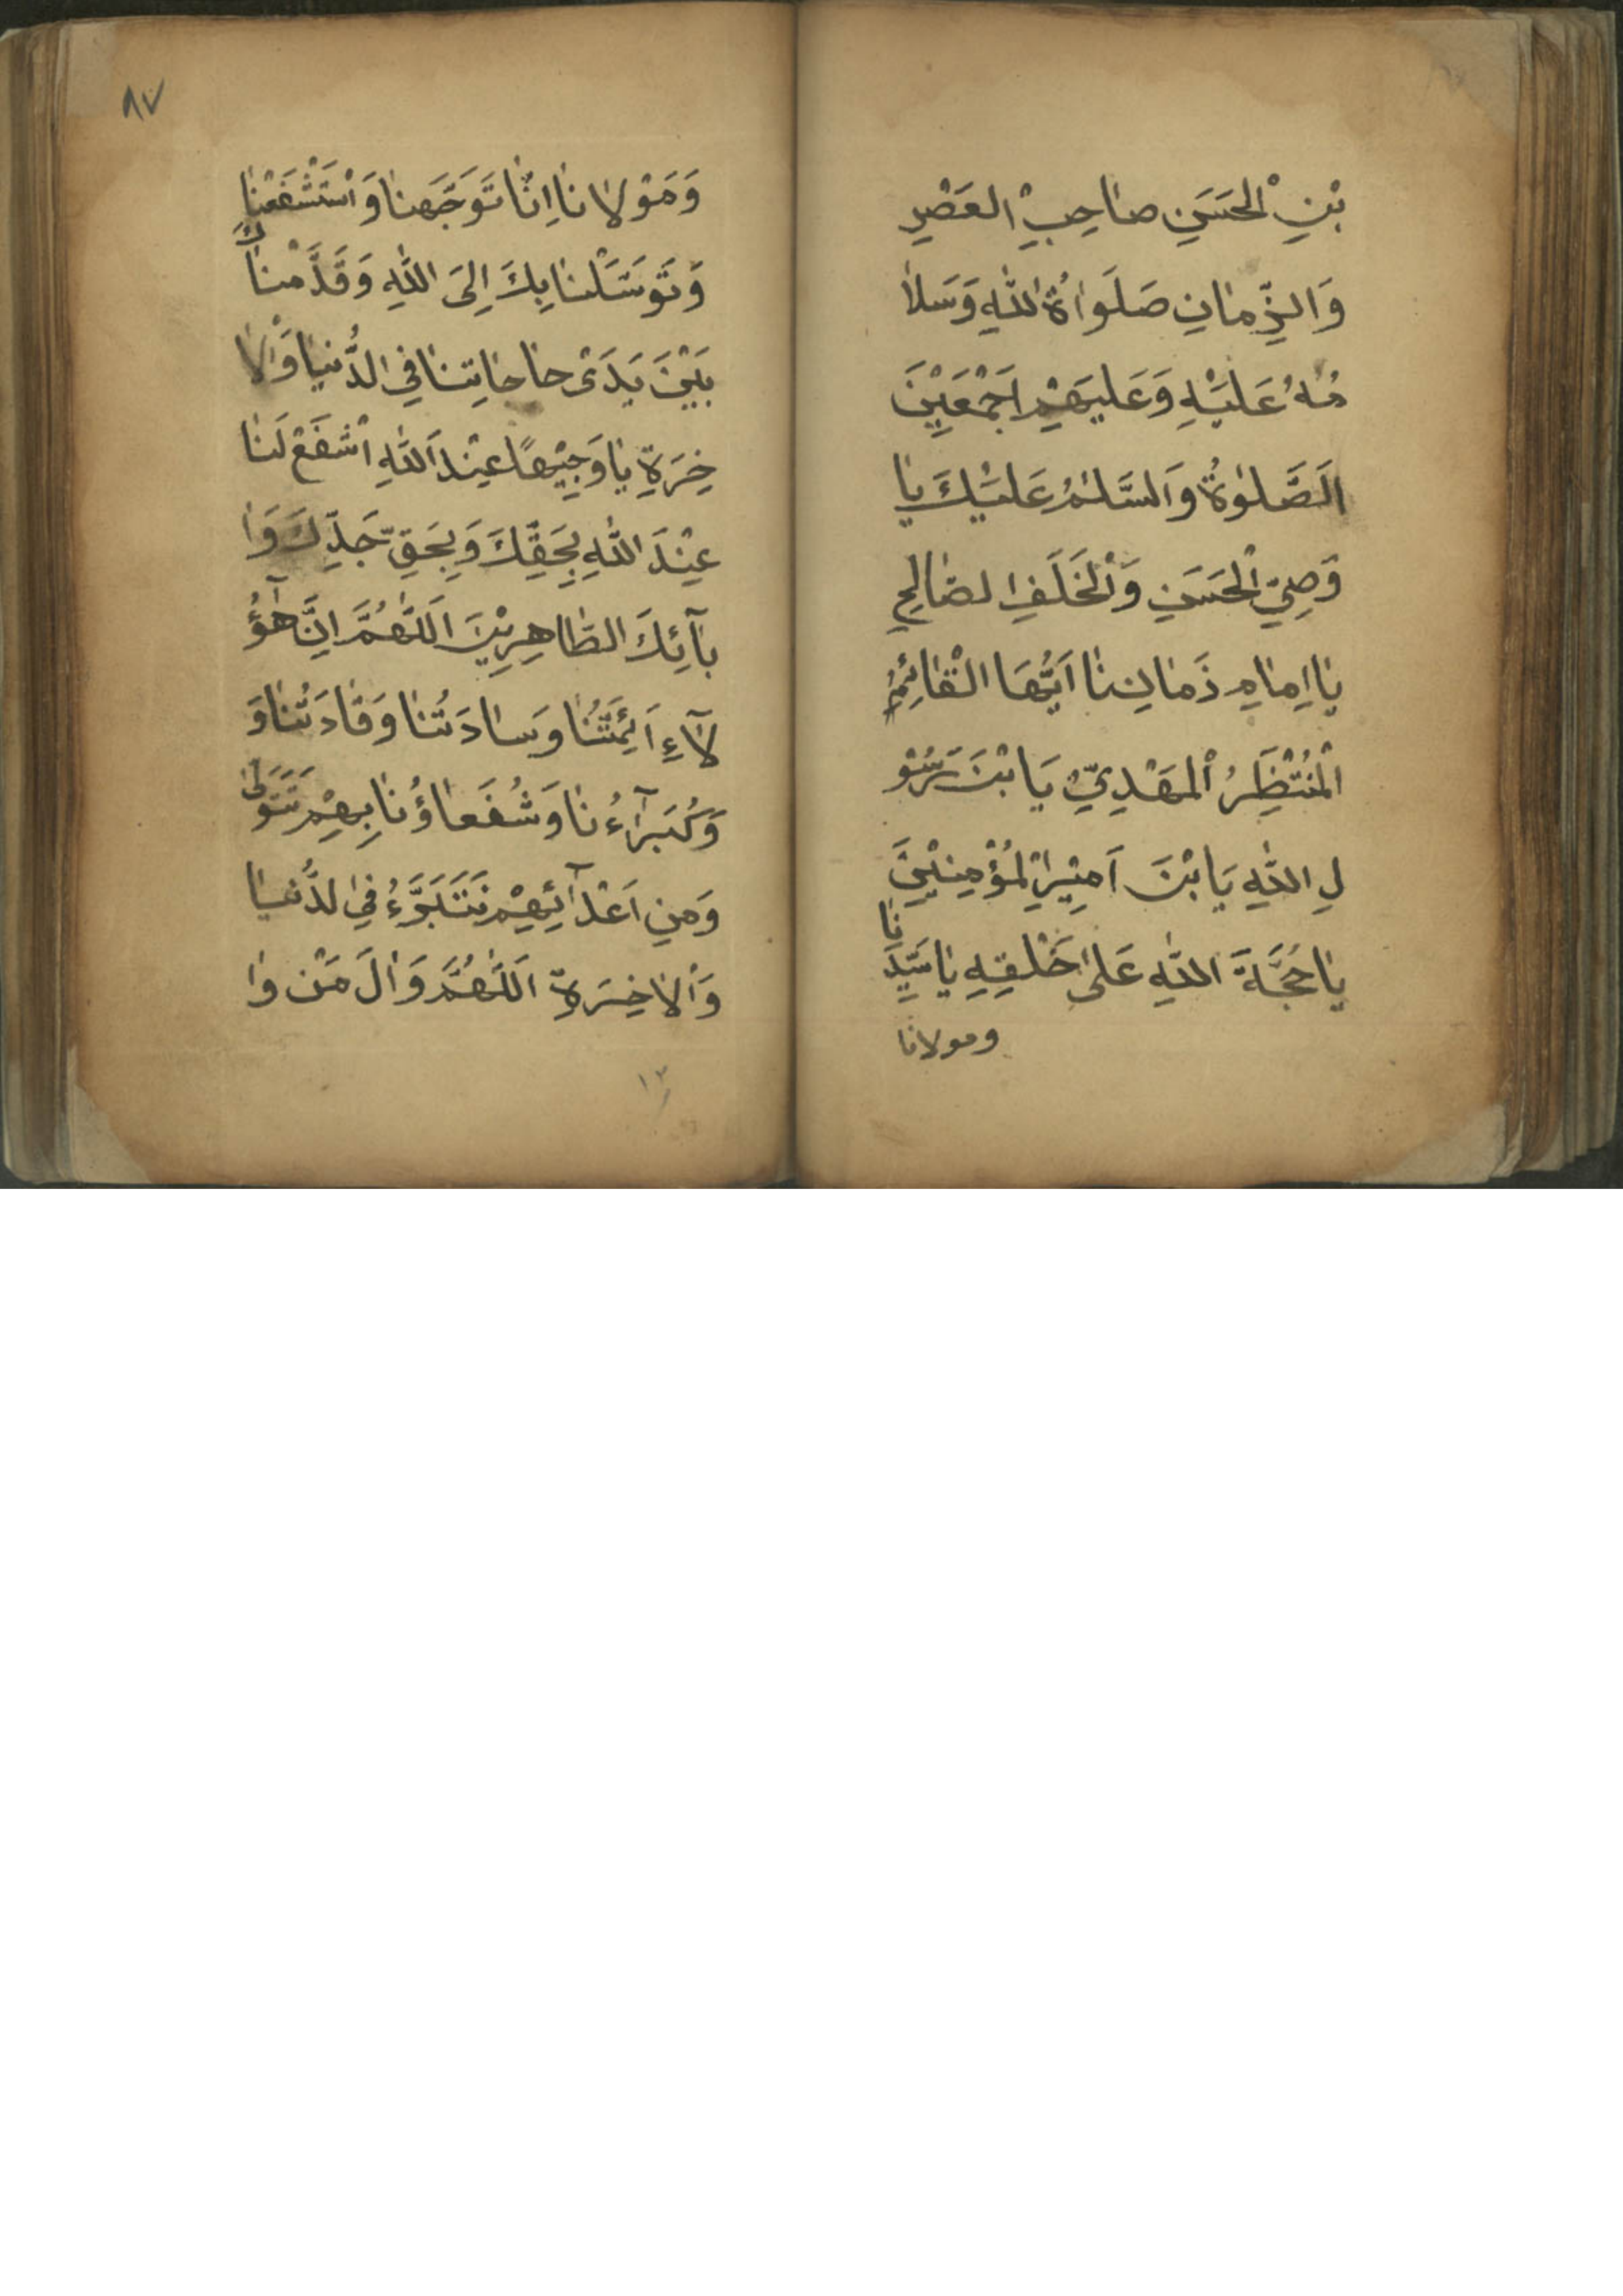 بْنِ الْحَسَنِ صاحِبِ الْعَصْرِ
وَالزِّمانِ صَلَواةُ اللّٰهِ وَسَلا
مُهُ عَلَيْهِ وَعَليهِمْ اَجْمَعِيْنَ
اَلصَّلوٰةُ وَالسَّلٰمُ عَلَيْكَ يا
وَصِيِّ الْحَسَنِ وَالْخَلَفِ الصّالِحِ
يا اِمامِ زَمانِنا اَيُّهَا الْقائِمُ
الْمُنْتَظَِرُ الْمَهْدِيِّ يَا بْنَ رَسُوْ
لِ اللّٰهِ يَا بْنَ اَمِيْرِ الْمُؤْمِنِيْنَ
يا حُجَّةَ اللّٰهِ عَلىٰ خَلْقِهِ يا سَيِّدَنا
ومولانا
٨٧
وَمَوْلانا اِنّا تَوَجَّهنا وَاسْتَشْفَعْنا
وَتَوَسَّلْنا بِكَ اِلَى اللّٰهِ وَقَدَّمْناكَ
بَيْنَ يَدَىْ حاجاتِنا فِى الدُّنيا وَالْا
خِرَةِ يا وَجِيْهًا عِنْدَ اللّٰهِ اشْفَعْ لَنا
عِنْدَ اللّٰهِ بِحَقِّكَ وَبِحَقِّ جَدِّكَ وَا
بآئِكَ الطّاهِرِيْنَ اَللّٰهُمَّ اِنَّ هٰؤُ
لآءِ اَئِمَّتُنا وَسادَتُنا وَقادَتُنا وَ
وَكُبَرآءُنا وَشُفَعاؤُنا بِهِمْ نَتَوَلّىٰ
وَمِنِ اَعْدآئِهِمْ نَتَبَرَّءُ فِى الدُّنْيا
وَالْاخِرَةِ اَللّٰهُمَّ وَالَ مَنْ وا
١٣